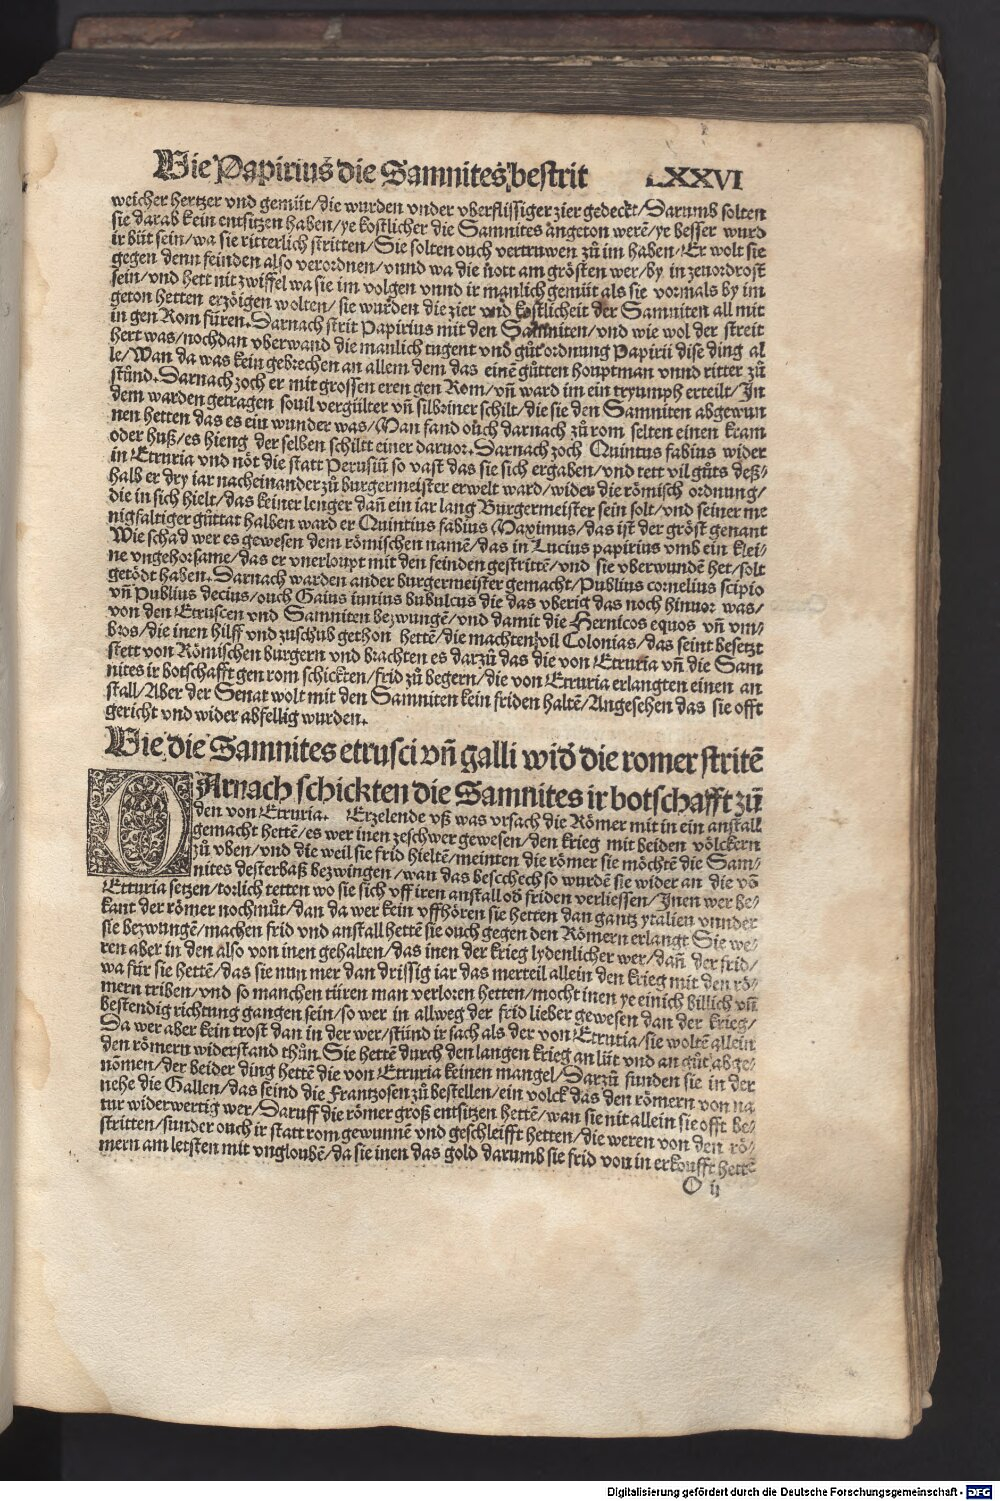 Wie Papirius die Samnites bestrit LXXVI
weicher hertzer vnd gemüt/die wurden vnder vberflüssiger zier gedeckt/Darumb solten
sie darab kein entsitzen haben/ye kostlicher die Samnites angeton werē/ye besser wurd
ir büt sein/wa sie ritterlich stritten/Sie solten ouch vertruwen zů im haben/Er wolt sie
gegen denn feinden also verordnen/vnnd wa die nott am grösten wer/by in zeuordrost
sein/vnd hett nit zwiffel wa sie im volgen vnnd ir manlich gemüt als sie vormals by im
geton hetten erzöigen wolten/sie wurden die zier vnd kostlicheit der Samniten all mit
in gen Rom füren.Darnach strit Papirius mit den Samniten/vnd wie wol der streit
hert was/nochdan vberwand die manlich tugent vnd gůt ordnung Papirii dise ding al
le/Wan da was kein gebrechen an allem dem das einē gůtten houptman vnnd ritter zů
stůnd.Darnach zoch er mit grossen eren gen Rom/vñ ward im ein tryumph erteilt/In
dem warden getragen souil vergülter vñ silbriner schilt/die sie den Samniten abgewun
nen hetten das es ein wunder was/Man fand ouch darnach zů rom selten einen kram
oder huß/es hieng der selben schiltt einer daruor.Darnach zoch Quintus fabius wider
in Etruria vnd nöt die statt Perusiū so vast das sie sich ergaben/vnd tett vil gůts deß/
halb er dry iar nacheinander zů burgermeister erwelt ward/wider die römisch ordnung/
die in sich hielt/das keiner lenger dañ ein iar lang Burgermeister sein solt/vnd seiner me
nigfaltiger gůttat halben ward er Quintius fabius Maximus/das ist der gröst genant
Wie schad wer es gewesen dem römischen namē/das in Lucius papirius vmb ein klei/
ne vngehorsame/das er vnerloupt mit den feinden gestrittē/vnd sie vberwundē het/solt
getödt haben.Darnach warden ander burgermeister gemacht/Publius cornelius scipio
vñ Publius decius/ouch Gaius iunius bubulcus die das vberig das noch hinuor was/
von den Etruscen vnd Samniten bezwungē/vnd damit die Hernicos equos vñ vm/
bros/die inen hilff vnd zuschub gethon hettē/die machten vil Colonias/das seint besetzt
stett von Römischen burgern vnd brachten es darzů das die von Etruria vñ die Sam
nites ir botschafft gen rom schickten/frid zů begern/die von Etruria erlangten einen an
stall/Aber der Senat wolt mit den Samniten kein friden haltē/Angesehen das sie offt
gericht vnd wider abfellig wurden.
Wie die Samnites etrusci vñ galli wid' die romer stritē
DArnach schickten die Samnites ir botschafft zů
den von Etruria. Erzelende vß was vrsach die Römer mit in ein anstall
gemacht hettē/es wer inen zeschwer gewesen/den krieg mit beiden völckern
zů vben/vnd die weil sie frid hieltē/meinten die römer sie möchtē die Sam/
nites desterbaß bezwingen/wan das beschech so wurdē sie wider an die vō
Etruria setzen/torlich tetten wo sie sich vff iren anstall od' friden verliessen/Inen wer be/
kant der römer nochmůt/dan da wer kein vffhören sie hetten dan gantz ytalien vnnder
sie bezwungē/machen frid vnd anstall hettē sie ouch gegen den Römern erlangt Sie we/
ren aber in den also von inen gehalten/das inen der krieg lydenlicher wer/dañ der frid/
wa für sie hettē/das sie nun mer dan drissig iar das merteil allein den krieg mit den rö/
mern triben/vnd so manchen türen man verloren hetten/mocht inen ye einich billich vñ
bestendig richtung gangen sein/so wer in allweg der frid lieber gewesen dan der krieg/
Da wer aber kein trost dan in der wer/stünd ir sach als der von Etrutia/sie woltē allein
den römern widerstand thůn.Sie hettē durch den langen krieg an lüt vnd an gůt abge/
nōmen/der beider ding hettē die von Etruria keinen mangel/Darzů funden sie in der
nehe die Gallen/das seind die Frantzosen zů bestellen/ein volck das den römern von na
tur widerwertig wer/Daruff die römer groß entsitzen hettē/wan sie nit allein sie offt be/
stritten/sunder ouch ir statt rom gewunnē vnd geschleifft hetten/die weren von den rö/
mern am letsten mit vngloubē/da sie inen das gold darumb sie frid von in erkoufft hettē
O ij
Digitalisierung gefördert durch die Deutsche Forschungsgemeinschaft - DFG